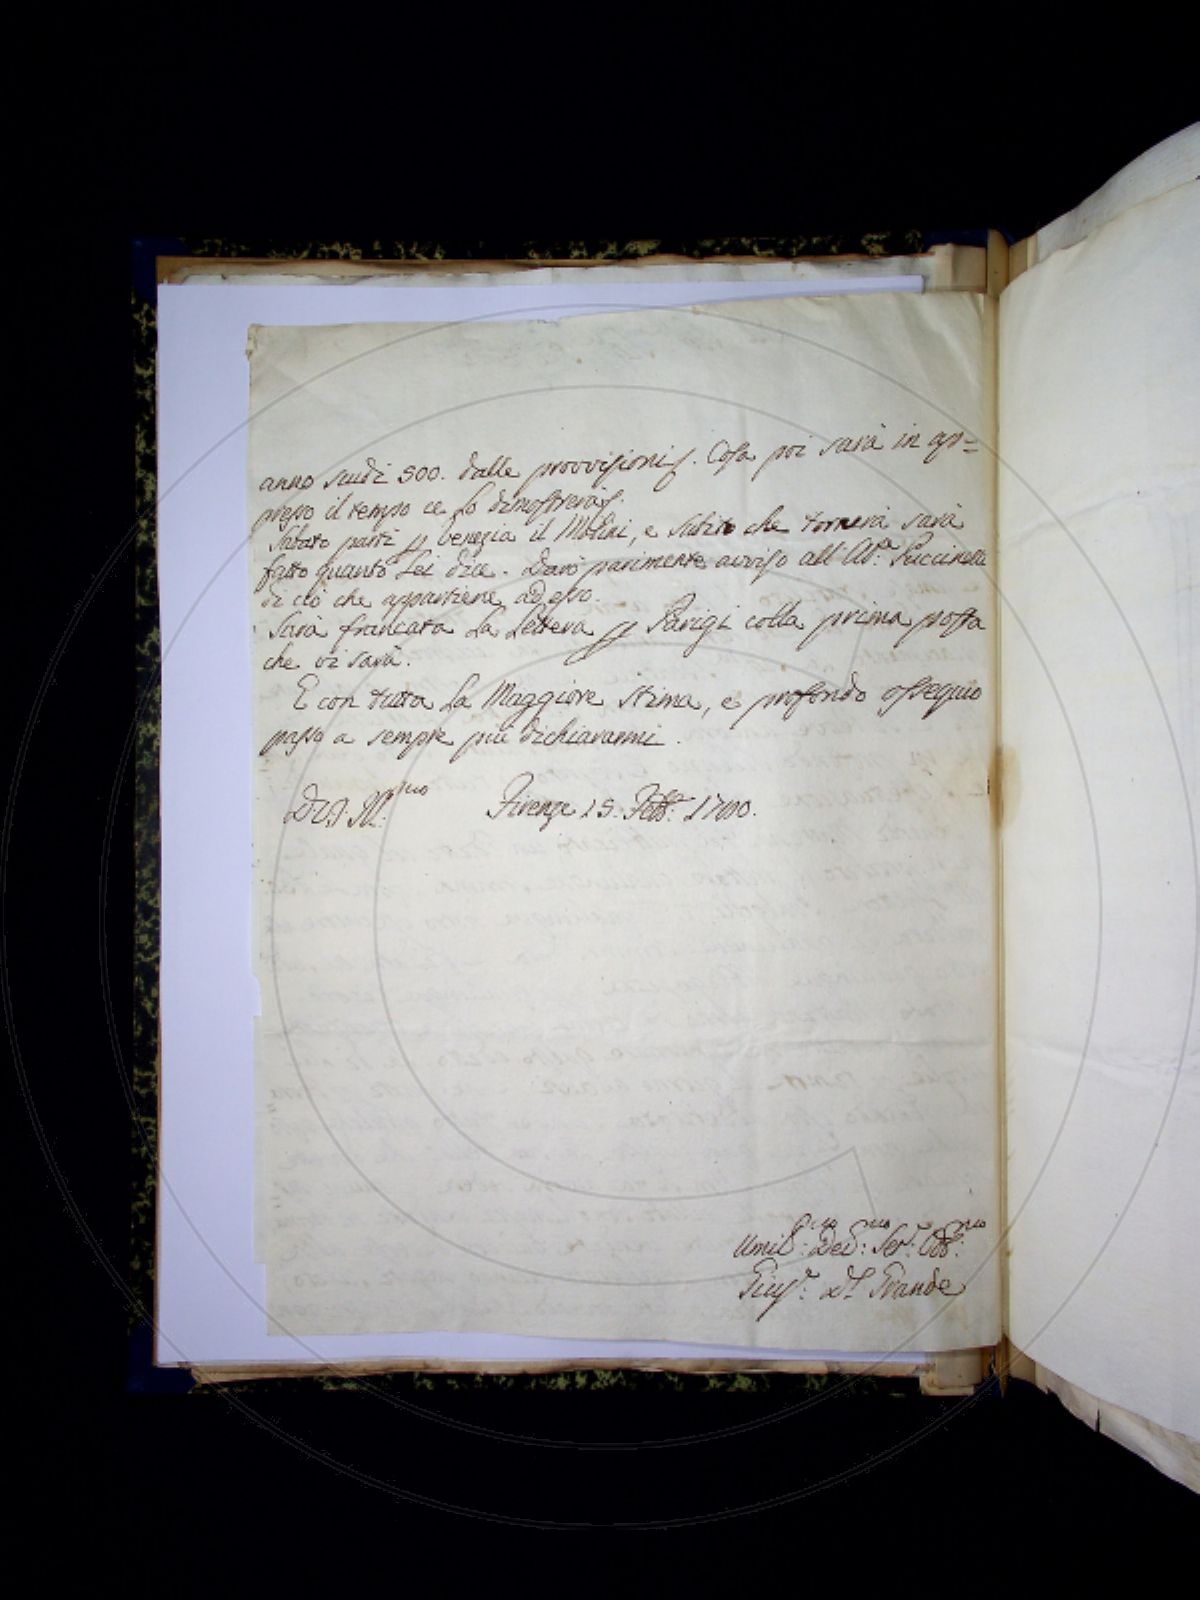 anno scudi 500. dalle provvisioni. Cosa poi sarà in ap=
presso il tempo ce lo dimostrerà.
Sabato partì p Venezia il Molini, e subito che tornerà sarà
fatto quanto Lei dice. Darò parimente avviso all' Ab.e Puccinelli
di ciò che appartiene ad esso.
Sarà francata la Lettera p Parigi colla prima posta
che vi sarà.
E con tutta la Maggiore stima, e profondo ossequio
passo a sempre più dichiararmi.
Firenze 15. Febb.o
Umil:mo Dev:mo Ser.e Obb:mo
Del Grande